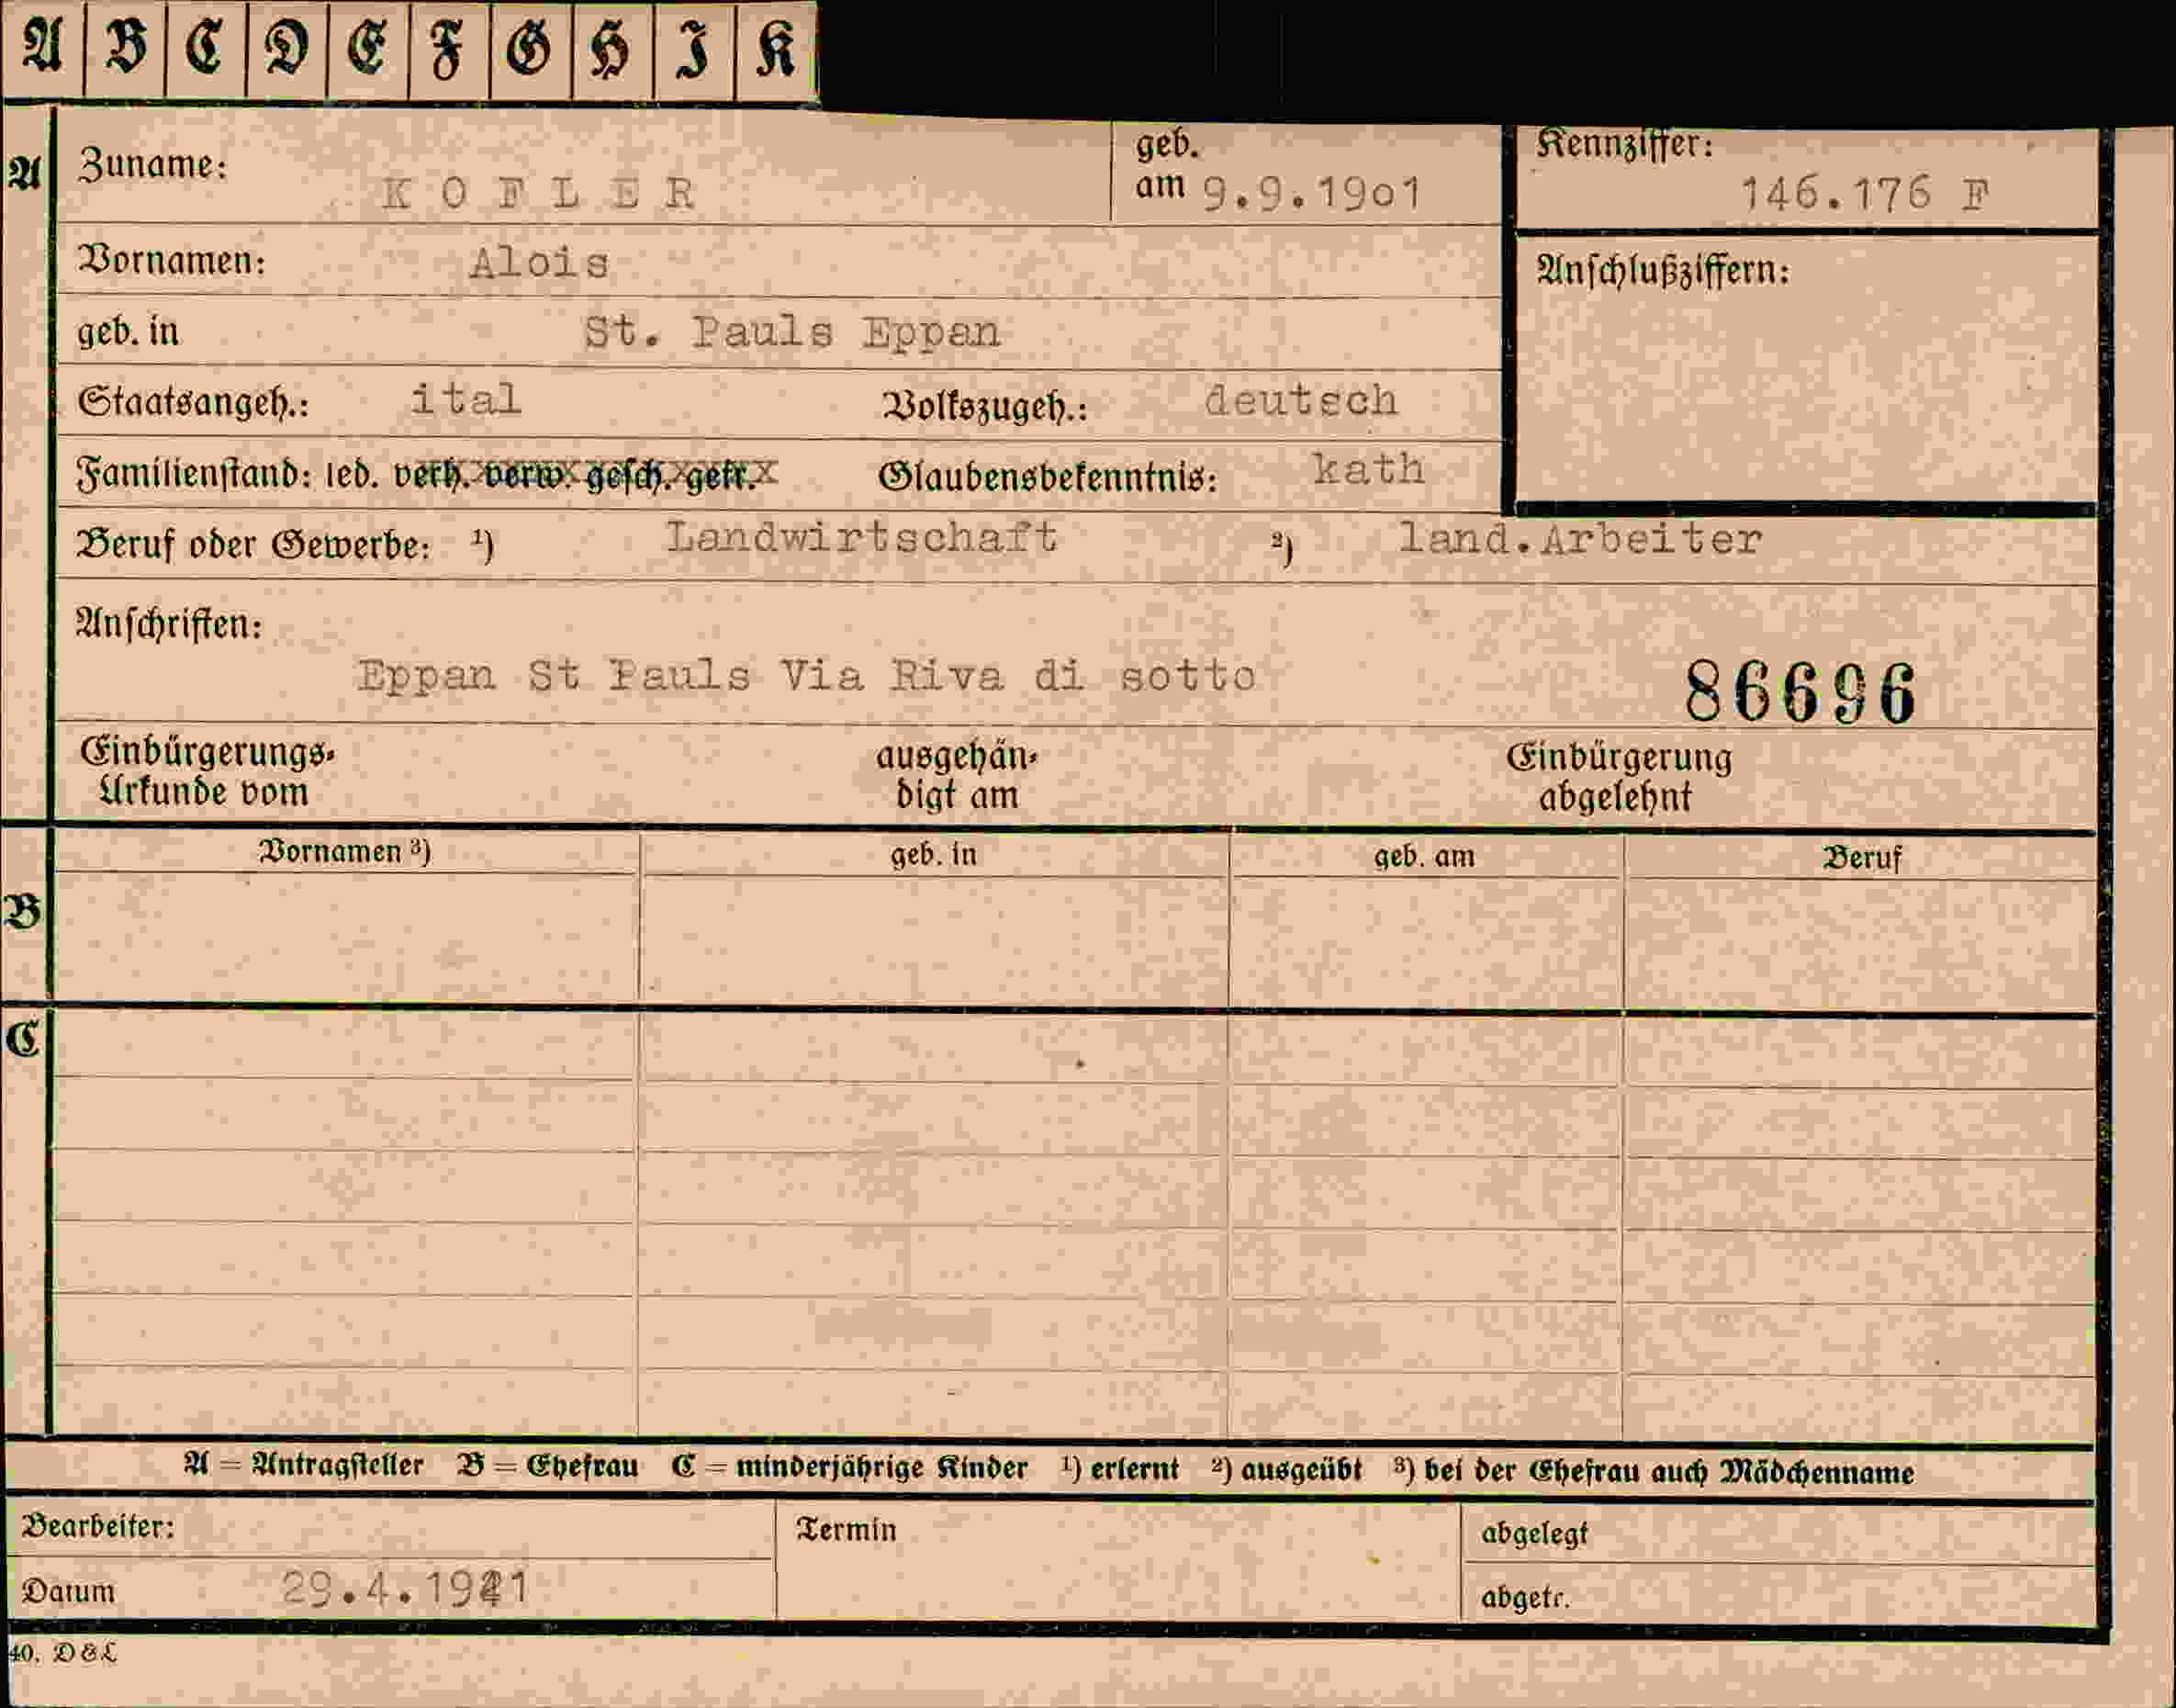 A B C D E F G H I K
A
Zuname: KOFLER geb. am 9.9.1901 Kennziffer: 146.176 F
Vornamen: Alois Anschlußziffern:
geb. in St. Pauls Eppan
Staatsangeh.: ital Volkszugeh.: deutsch
Familienstand: led. verh. verw. gesch. getr. Glaubensbekenntnis: kath
Beruf oder Gewerbe: ¹) Landwirtschaft ²) land.Arbeiter
Anschriften:
Eppan St Pauls Via Riva di sotto 86696
Einbürgerungs- Urkunde vom ausgehän- digt am Einbürgerung abgelehnt
Vornamen ³) geb. in geb. am Beruf
B
C
A = Antragsteller B = Ehefrau C = minderjährige Kinder ¹) erlernt ²) ausgeübt ³) bei der Ehefrau auch Mädchenname
Bearbeiter: Termin abgelegt
Datum 29.4.1941 abgetr.
40. D&L